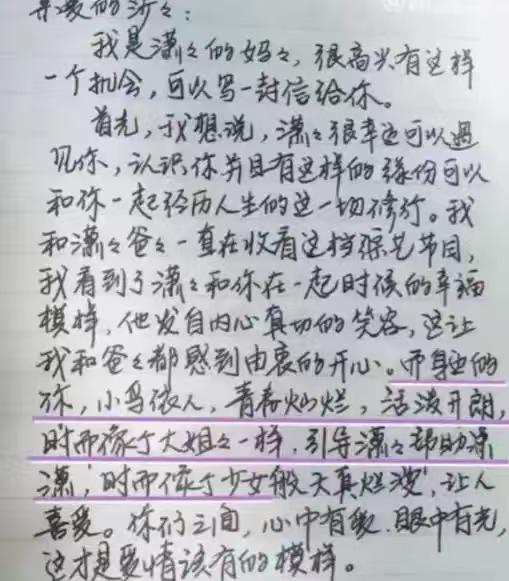 亲爱的沙々：
我是潇々的妈々，很高兴有这样
一个机会，可以写一封信给你。
首先，我想说，潇々很幸运可以遇
见你，认识你并且有这样的缘份可以
和你一起经历人生的这一切修行。我
和潇々爸々一直在收看这档综艺节目，
我看到了潇々和你在一起时候的幸福
模样，他发自内心真切的笑容，这让
我和爸々都感到由衷的开心。而身边的
你，小鸟依人，青春灿烂，活泼开朗，
时而像个大姐々一样，引导潇々帮助潇
潇，时而像个少女般天真烂漫，让人
喜爱。你们之间，心中有爱，眼中有光，
这才是爱情该有的模样。